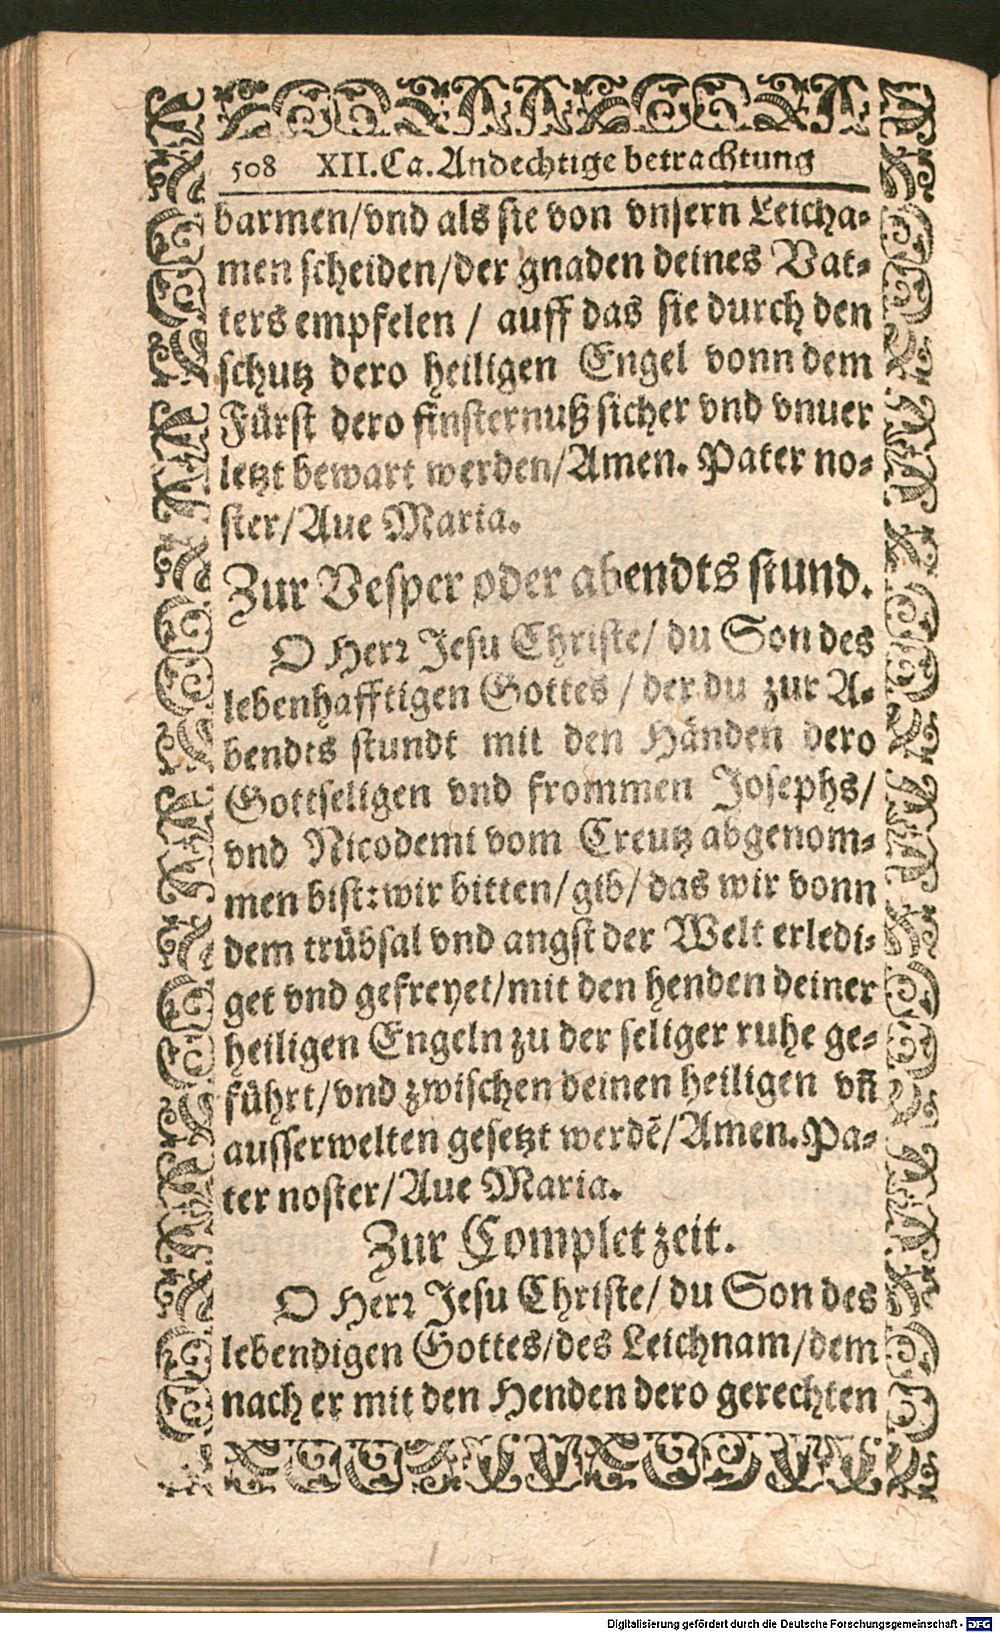 508 XII. Ca. Andechtige betrachtung
barmen/vnd als sie von vnsern Leicha-
men scheiden/der gnaden deines Vat-
ters empfelen / auff das sie durch den
schutz dero heiligen Engel vonn dem
Fürst dero finsternuß sicher vnd vnuer
letzt bewart werden/Amen. Pater no-
ster/Aue Maria.
Zur Vesper oder abendts stund.
O Herr Jesu Christe/ du Son des
lebenhafftigen Gottes / der du zur A-
bendts stundt mit den Händen dero
Gottseligen vnd frommen Josephs/
vnd Nicodemi vom Creutz abgenom-
men bist: wir bitten/gib/ das wir vonn
dem trübsal vnd angst der Welt erledi-
get vnd gefreyet/mit den henden deiner
heiligen Engeln zu der seliger ruhe ge-
führt/vnd zwischen deinen heiligen vn̄
ausserwelten gesetzt werdē/Amen. Pa-
ter noster/Aue Maria.
Zur Complet zeit.
O Herr Jesu Christe/ du Son des
lebendigen Gottes/des Leichnam/dem
nach er mit den Henden dero gerechten
Digitalisierung gefördert durch die Deutsche Forschungsgemeinschaft - DFG